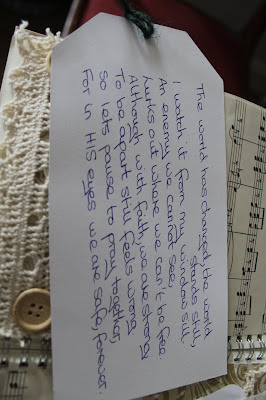 The world has changed, the world
stands still,
I watch it from my window sill,
An enemy we cannot see,
Lurks out where we can't be free.
Although with faith, we are strong
To be apart still feels wrong
So lets pause to pray together,
For in HIS eyes we are safe, forever.